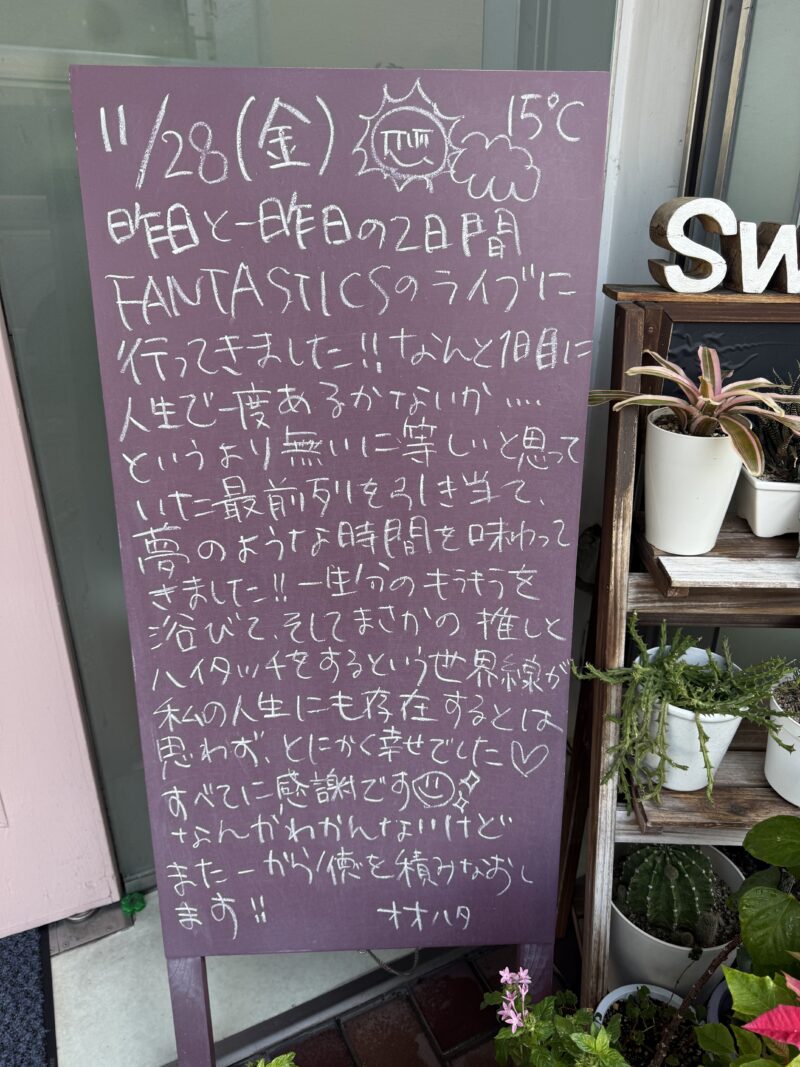 11/28(金) 15℃
昨日と一昨日の2日間
FANTASTICSのライブに
行ってきました!! なんと1日目に
人生で一度あるかないか....
というより無いに等しいと思って
いた最前列を引き当て、
夢のような時間を味わって
きました!! 一生分のもうもうを
浴びて、そしてまさかの推しと
ハイタッチをするという世界線が
私の人生にも存在するとは
思わず、とにかく幸せでした♡
すべてに感謝です
なんかわかんないけど
また一から徳を積みなおし
ます!! オオハタ
Sw